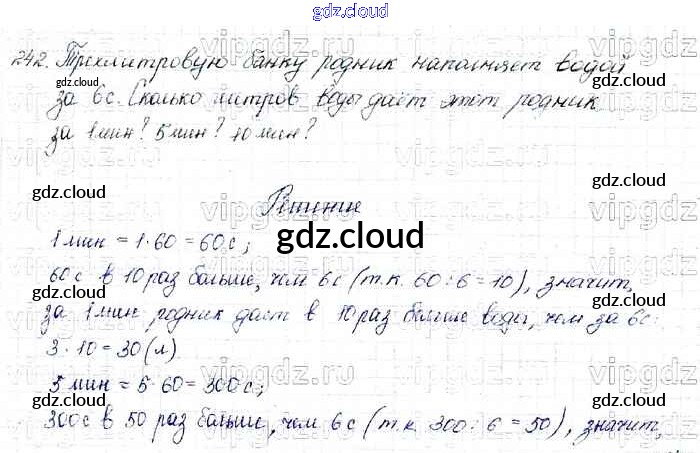 gdz.cloud
242. Трехлитровую банку родник наполняет водой
gdz.cloud gdz.cloud
за 6с. Сколько литров воды даёт этот родник
за 1 мин? 5 мин? 10 мин?
gdz.cloud gdz.cloud
Решение
1 мин = 1·60 = 60с;
gdz.cloud
60с в 10 раз больше, чем 6с (т.к. 60:6=10), значит,
за 1 мин родник даст в 10 раз больше воды, чем за 6с:
3·10 = 30 (л)
gdz.cloud gdz.cloud
5 мин = 5·60 = 300с;
300с в 50 раз больше, чем 6с (т.к. 300:6=50), значит,